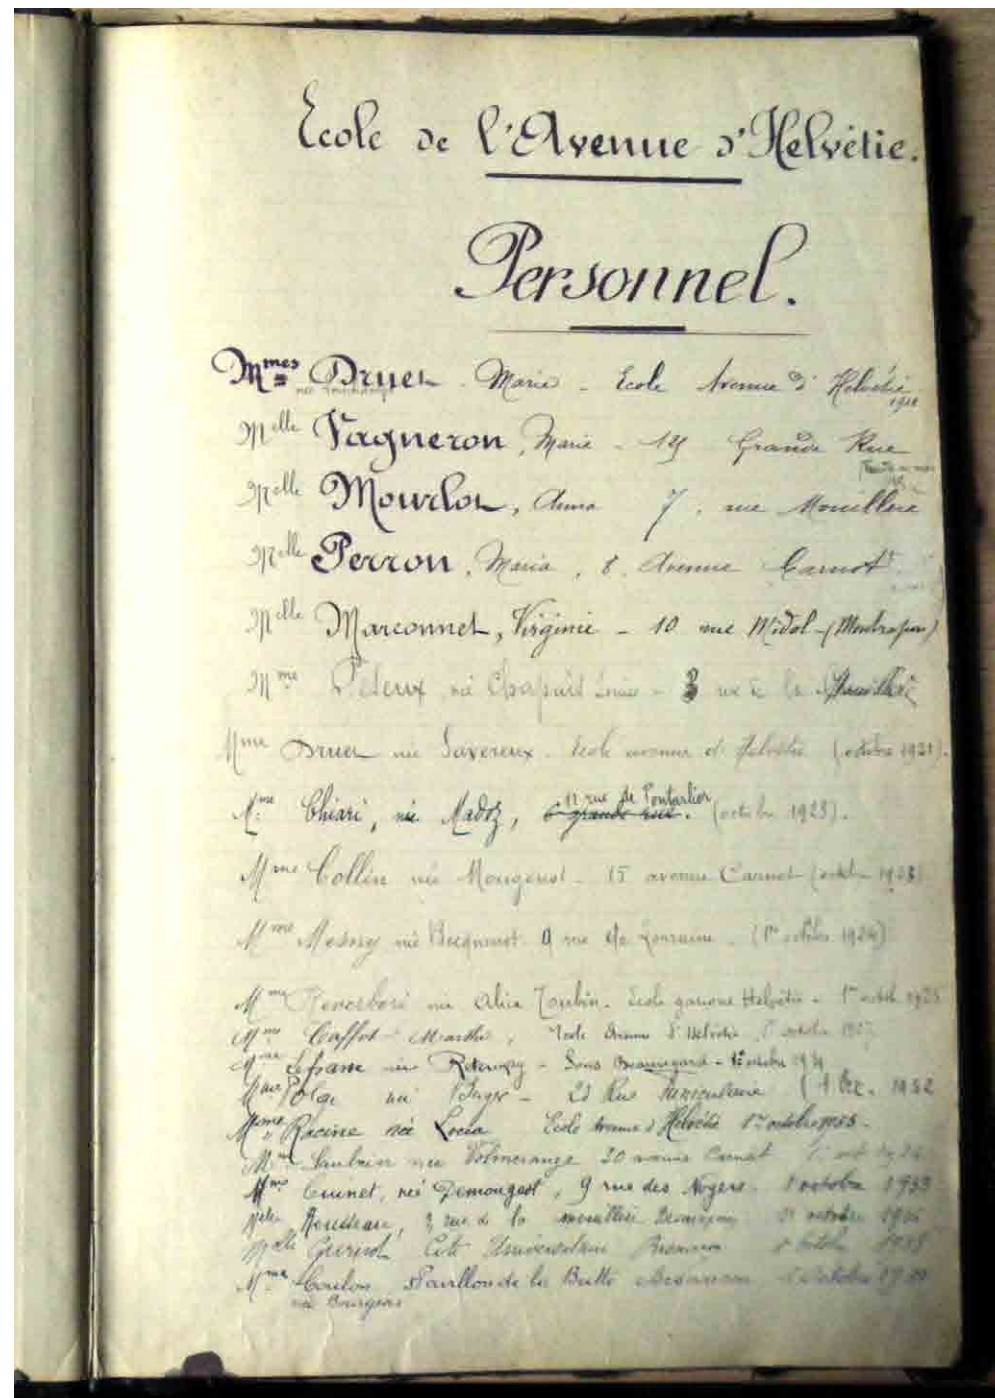 Ecole de l'Avenue d'Helvétie.
Personnel.
Mmes Druet Marie - Ecole Avenue d'Helvétie
Melle Vagneron, Marie - 125 Grande Rue
Melle Mourlot, Anna 7, rue Mouillère
Melle Perron, Maria, 8, Avenue Carnot
Melle Marconnet, Virginie - 10 rue Midol - (Montrapon)
Mme Peteux, née Chapuis Louise - 3 rue de la Mouillère
Mme Druet née Savereux. Ecole avenue d'Helvétie (octobre 1921).
11 rue de Pontarlier
Mme Chiari, née Madoz, 6 grande rue. (octobre 1923).
Mme Collin née Mougenot - 15 avenue Carnot (octobre 1923)
Mme Mesny née Becquinot 9 rue de Lorraine. (1er octobre 1924)
Mme née Alice Toubin. Ecole garçons Helvétie - 1er octob 1925
Mme Caffot Marthe, Ecole Avenue d'Helvétie, 1er octobre
Mme Lefranc née - Sous Beauregard - 1er octobre
Mme Polge née - 23 Rue Funiculaire (1 Oct. 1932
Mme Racine née Locia Ecole Avenue d'Helvétie 1er octobre 1933.
Mme Saulnier née Volmerange 20 avenue Carnot 1er oct
Mme Cuinet, née Demougeot, 9 rue des Noyers. 1 octobre 1933
Melle Rousseau, 3 rue de la mouillère Besançon octobre
Melle Guenot Cité Universitaire Besançon octobre
Mme Coulon Pavillon de la Butte Besançon Octobre
née Bourgeois